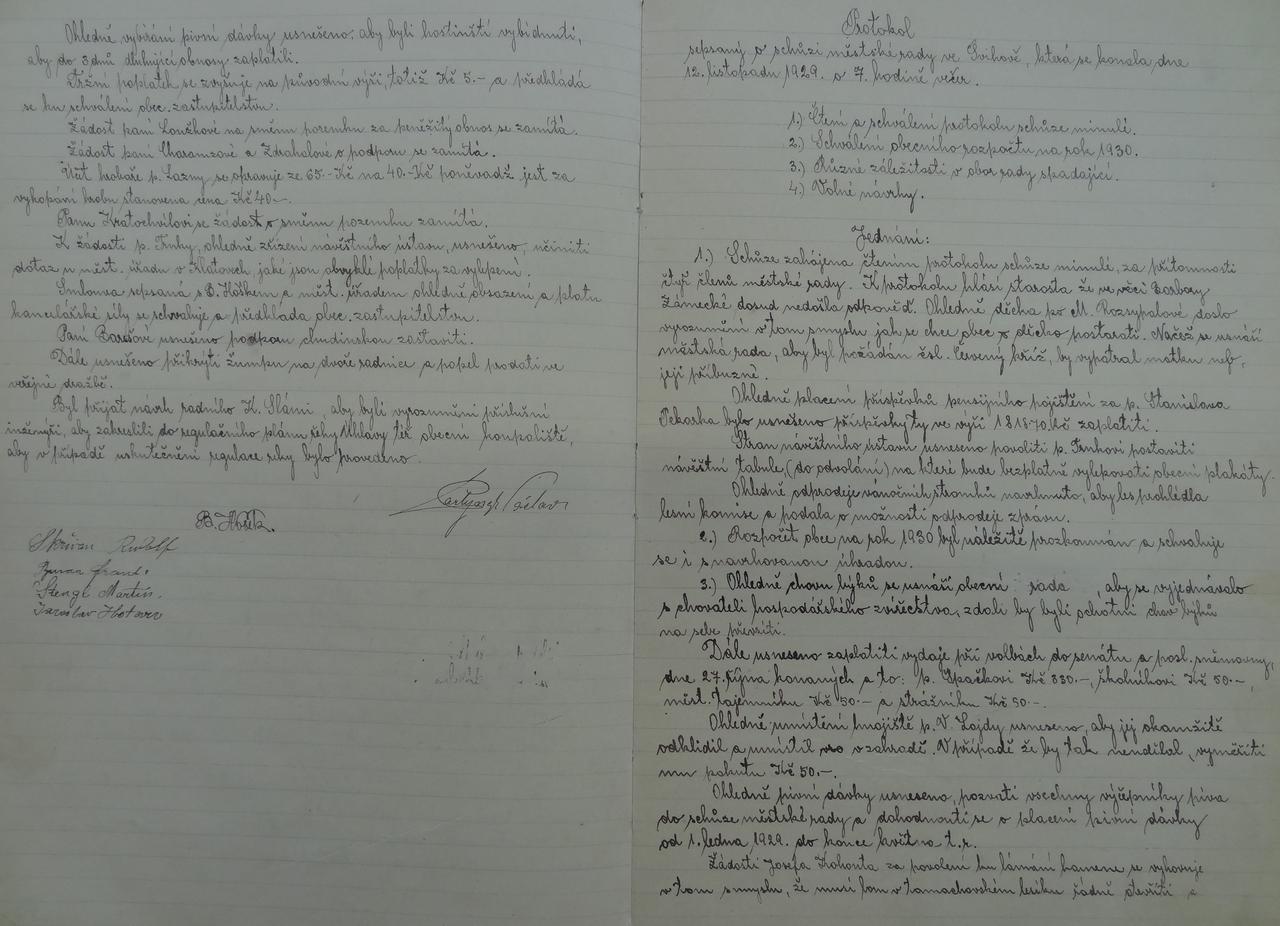 Ohledně vybírání pivní dávky usnešeno, aby byli hostinští vybídnuti,
aby do 3 dnů dlužující obnosy zaplatili.
Tržní poplatek se zvyšuje na původní výši, totiž Kč 5.- a předkládá
se ku schválení obec. zastupitelstvu.
Žádost paní Loužkové na směnu pozemku za peněžitý obnos se zamítá.
Žádost paní Charamzové a Zdrahalové o podporu se zamítá.
Účet hrobaře p. Lazny se opravuje ze 65.- Kč na 40.- Kč poněvadž jest za
vykopání hrobu stanovena cena Kč 40.-.
Panu Kratochvílovi se žádost o směnu pozemku zamítá.
K žádosti p. Trnky, ohledně zřízení návěštního ústavu, usnešeno, učiniti
dotaz u měst. úřadu v Klatovech, jaké jsou obvyklé poplatky za vylepení.
Smlouva sepsaná s B. Hoškem a měst. úřadem ohledně obsazení a platu
kancelářské síly se schvaluje a předkládá obec. zastupitelstvu.
Paní Barešové usnešeno podporu chudinskou zastaviti.
Dále usnešeno přikrýti žumpu na dvoře radnice a popel prodati ve
veřejné dražbě.
Byl přijat návrh radního K. Slámi, aby byli vyrozuměni příslušní
inženýři, aby zakreslili do regulačního plánu řeky Úhlavy též obecní koupaliště,
aby v případě uskutečnění regulace řeky bylo provedeno.
Václav
B. Hošek.
Skřivan Rudolf
Stengl Martin.
Jaroslav
Protokol
sepsaný o schůzi městské rady ve Švihově, která se konala dne
12. listopadu 1929. o 7. hodině večer.
1.) Čtení a schválení protokolu schůze minulé.
2.) Schválení obecního rozpočtu na rok 1930.
3.) Různé záležitosti v obor rady spadající.
4.) Volné návrhy.
Jednání:
1.) Schůze zahájena čtením protokolu schůze minulé, za přítomnosti
čtyř členů městské rady. K protokolu hlásí starosta že ve věci Barbory
Zámecké dosud nedošla odpověď. Ohledně děcka po M. Rozsypalové došlo
vyrozumění v tom smyslu jak se chce obec o děcko postarati. Načež se usnáší
městská rada, aby byl požádán čsl. Červený kříž, by vypátral matku neb,
její příbuzné.
Ohledně placení příspěvků pensijního pojištění za p. Stanislava
Pekárka bylo usneseno příspěvky ty ve výši 1315.70 Kč zaplatiti.
Stran návěštního ústavu usneseno povoliti p. Trnkovi postaviti
návěštní tabule, (do odvolání) na které bude bezplatně vylepovati obecní plakáty.
Ohledně odprodeje vánočních stromků navrhnuto, aby les prohlédla
lesní komise a podala o možnosti odprodeje zprávu.
2.) Rozpočet obce na rok 1930 byl náležitě prozkoumán a schvaluje
se i s navrhovanou úhradou.
3.) Ohledně chovu býků se usnáší obecní rada, aby se vyjednávalo
s chovateli hospodářského zvířectva, zdali by byli ochotni chov býků
na sebe převzíti.
Dále usneseno zaplatiti vydaje při volbách do senátu a posl. sněmovny,
dne 27. října konaných a to: p. Špačkovi Kč 330.-, školníkovi Kč 50.-,
měst. tajemníku Kč 50.- a strážníku Kč 50.-.
Ohledně umístění hnojiště p. V. Lojdy usneseno, aby jej okamžitě
odklidil a umístil v zahradě. V případě že by tak neudělal, vyměřiti
mu pokutu Kč 50.-.
Ohledně pivní dávky usneseno, pozvati všechny výčepníky piva
do schůze městské rady a dohodnouti se o placení pivní dávky
od 1. ledna 1929. do konce května t.r.
Žádosti Josefa Kohouta za povolení ku lámání kamene se vyhovuje
v tom smyslu, že musí lom v tamachovském lesíku řádně otevříti a